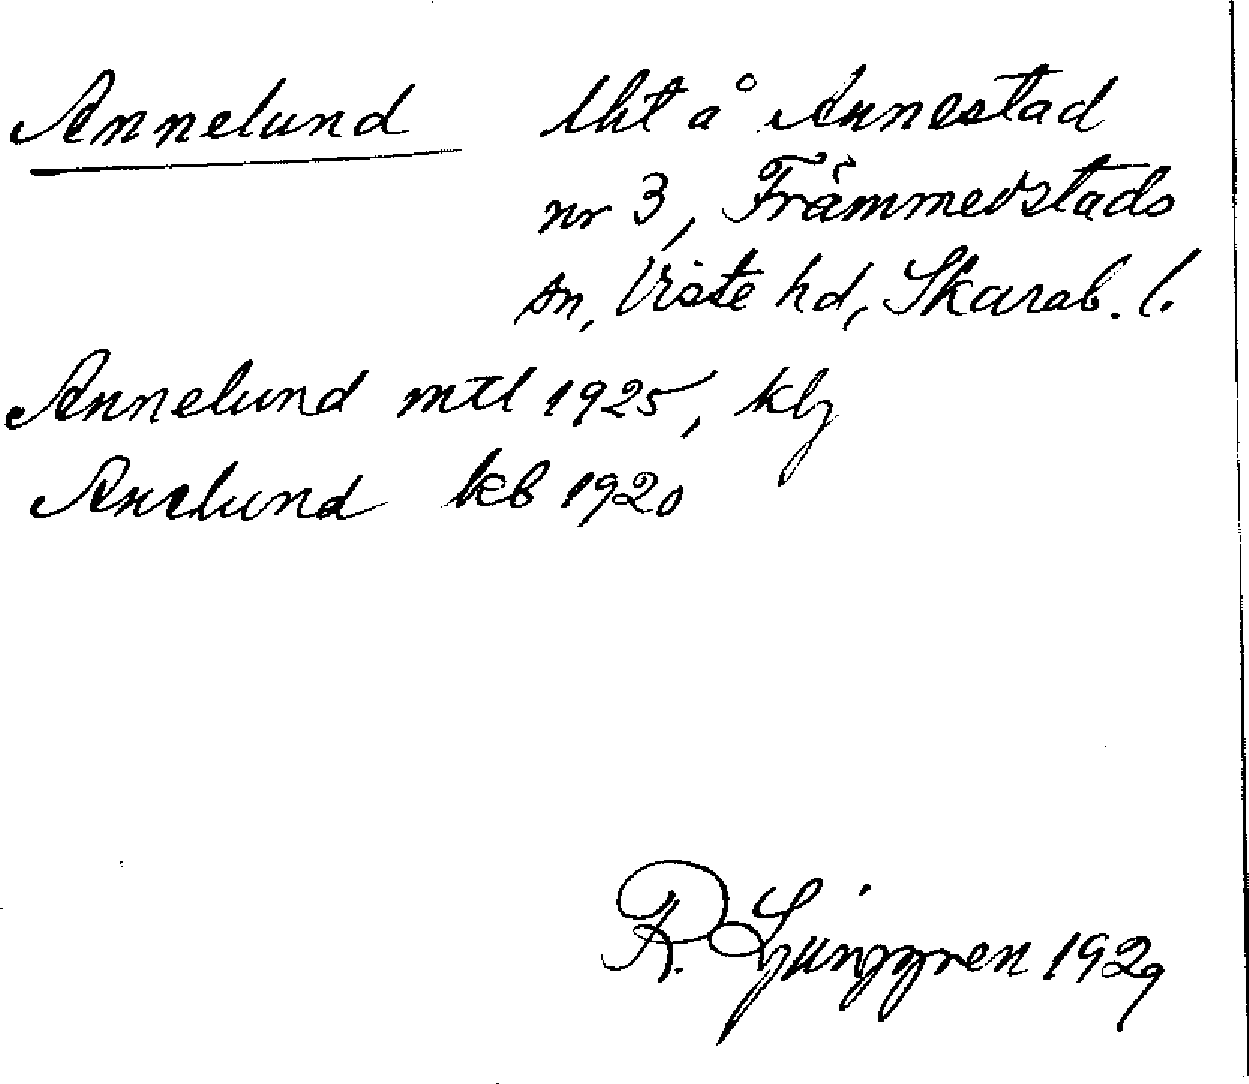 Annelund lht å Annestad
nr 3, Främmestads
sn, Viste hd, Skarab. l.
Annelund mtl 1925, kbg
Anelund kb 1920
R. Ljunggren 1929